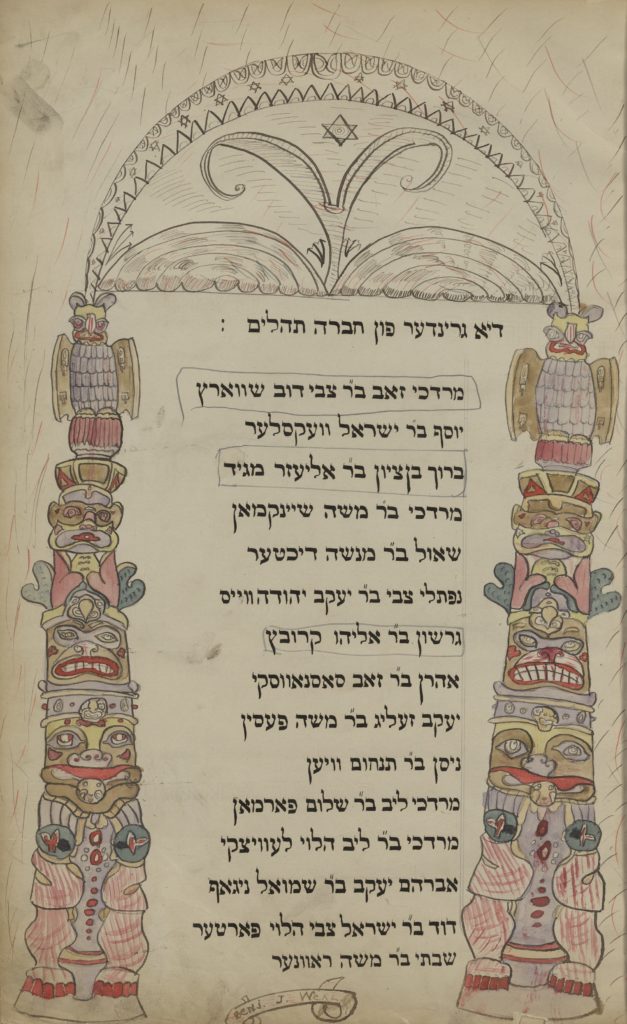 דיא גרינדער פון חברה תהלים :
מרדכי זאב בר׳ צבי דוב שווארץ
יוסף בר׳ ישראל וועקסלער
ברוך בן ציון בר׳ אליעזר מגיד
מרדכי בר׳ משה שיינקמאן
שאול בר׳ מנשה דיכטער
נפתלי צבי בר׳ יעקב יהודה ווייס
גרשון בר׳ אליהו קרובץ
אהרן בר׳ זאב סאסנאווסקי
יעקב זעליג בר׳ משה פעסין
ניסן בר׳ תנחום וויען
מרדכי ליב בר׳ שלום פארמאן
מרדכי בר׳ ליב הלוי לעוויצקי
אברהם יעקב בר׳ שמואל ניגאף
דוד בר׳ ישראל צבי הלוי פארטער
שבתי בר׳ משה ראוונער
BENJ. J.